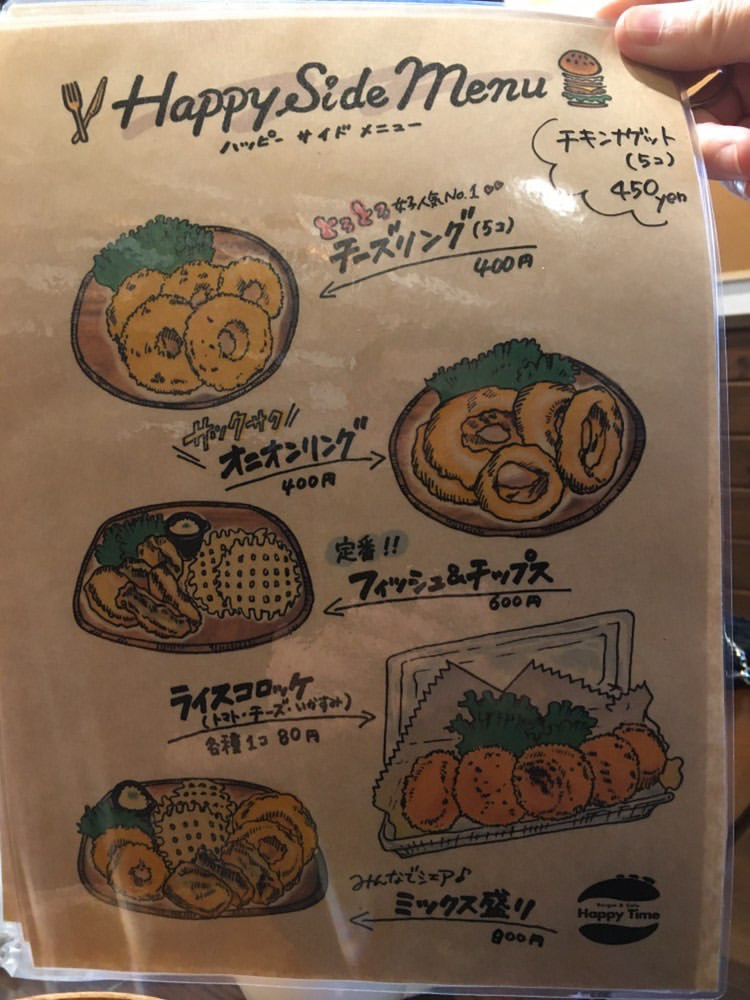 Happy Side Menu
ハッピー サイド メニュー
チキンナゲット
(5コ)
450yen
とろとろ 女子人気No.1
チーズリング(5コ)
400円
サックサク
オニオンリング
400円
定番!!
フィッシュ&チップス
600円
ライスコロッケ
(トマト・チーズ・いかすみ)
各種1コ 80円
みんなでシェア♪
ミックス盛り
800円
Burger & Cafe
Happy Time